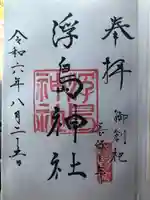 奉拝
御創祀
浮島神社
令和六年八月二十五日